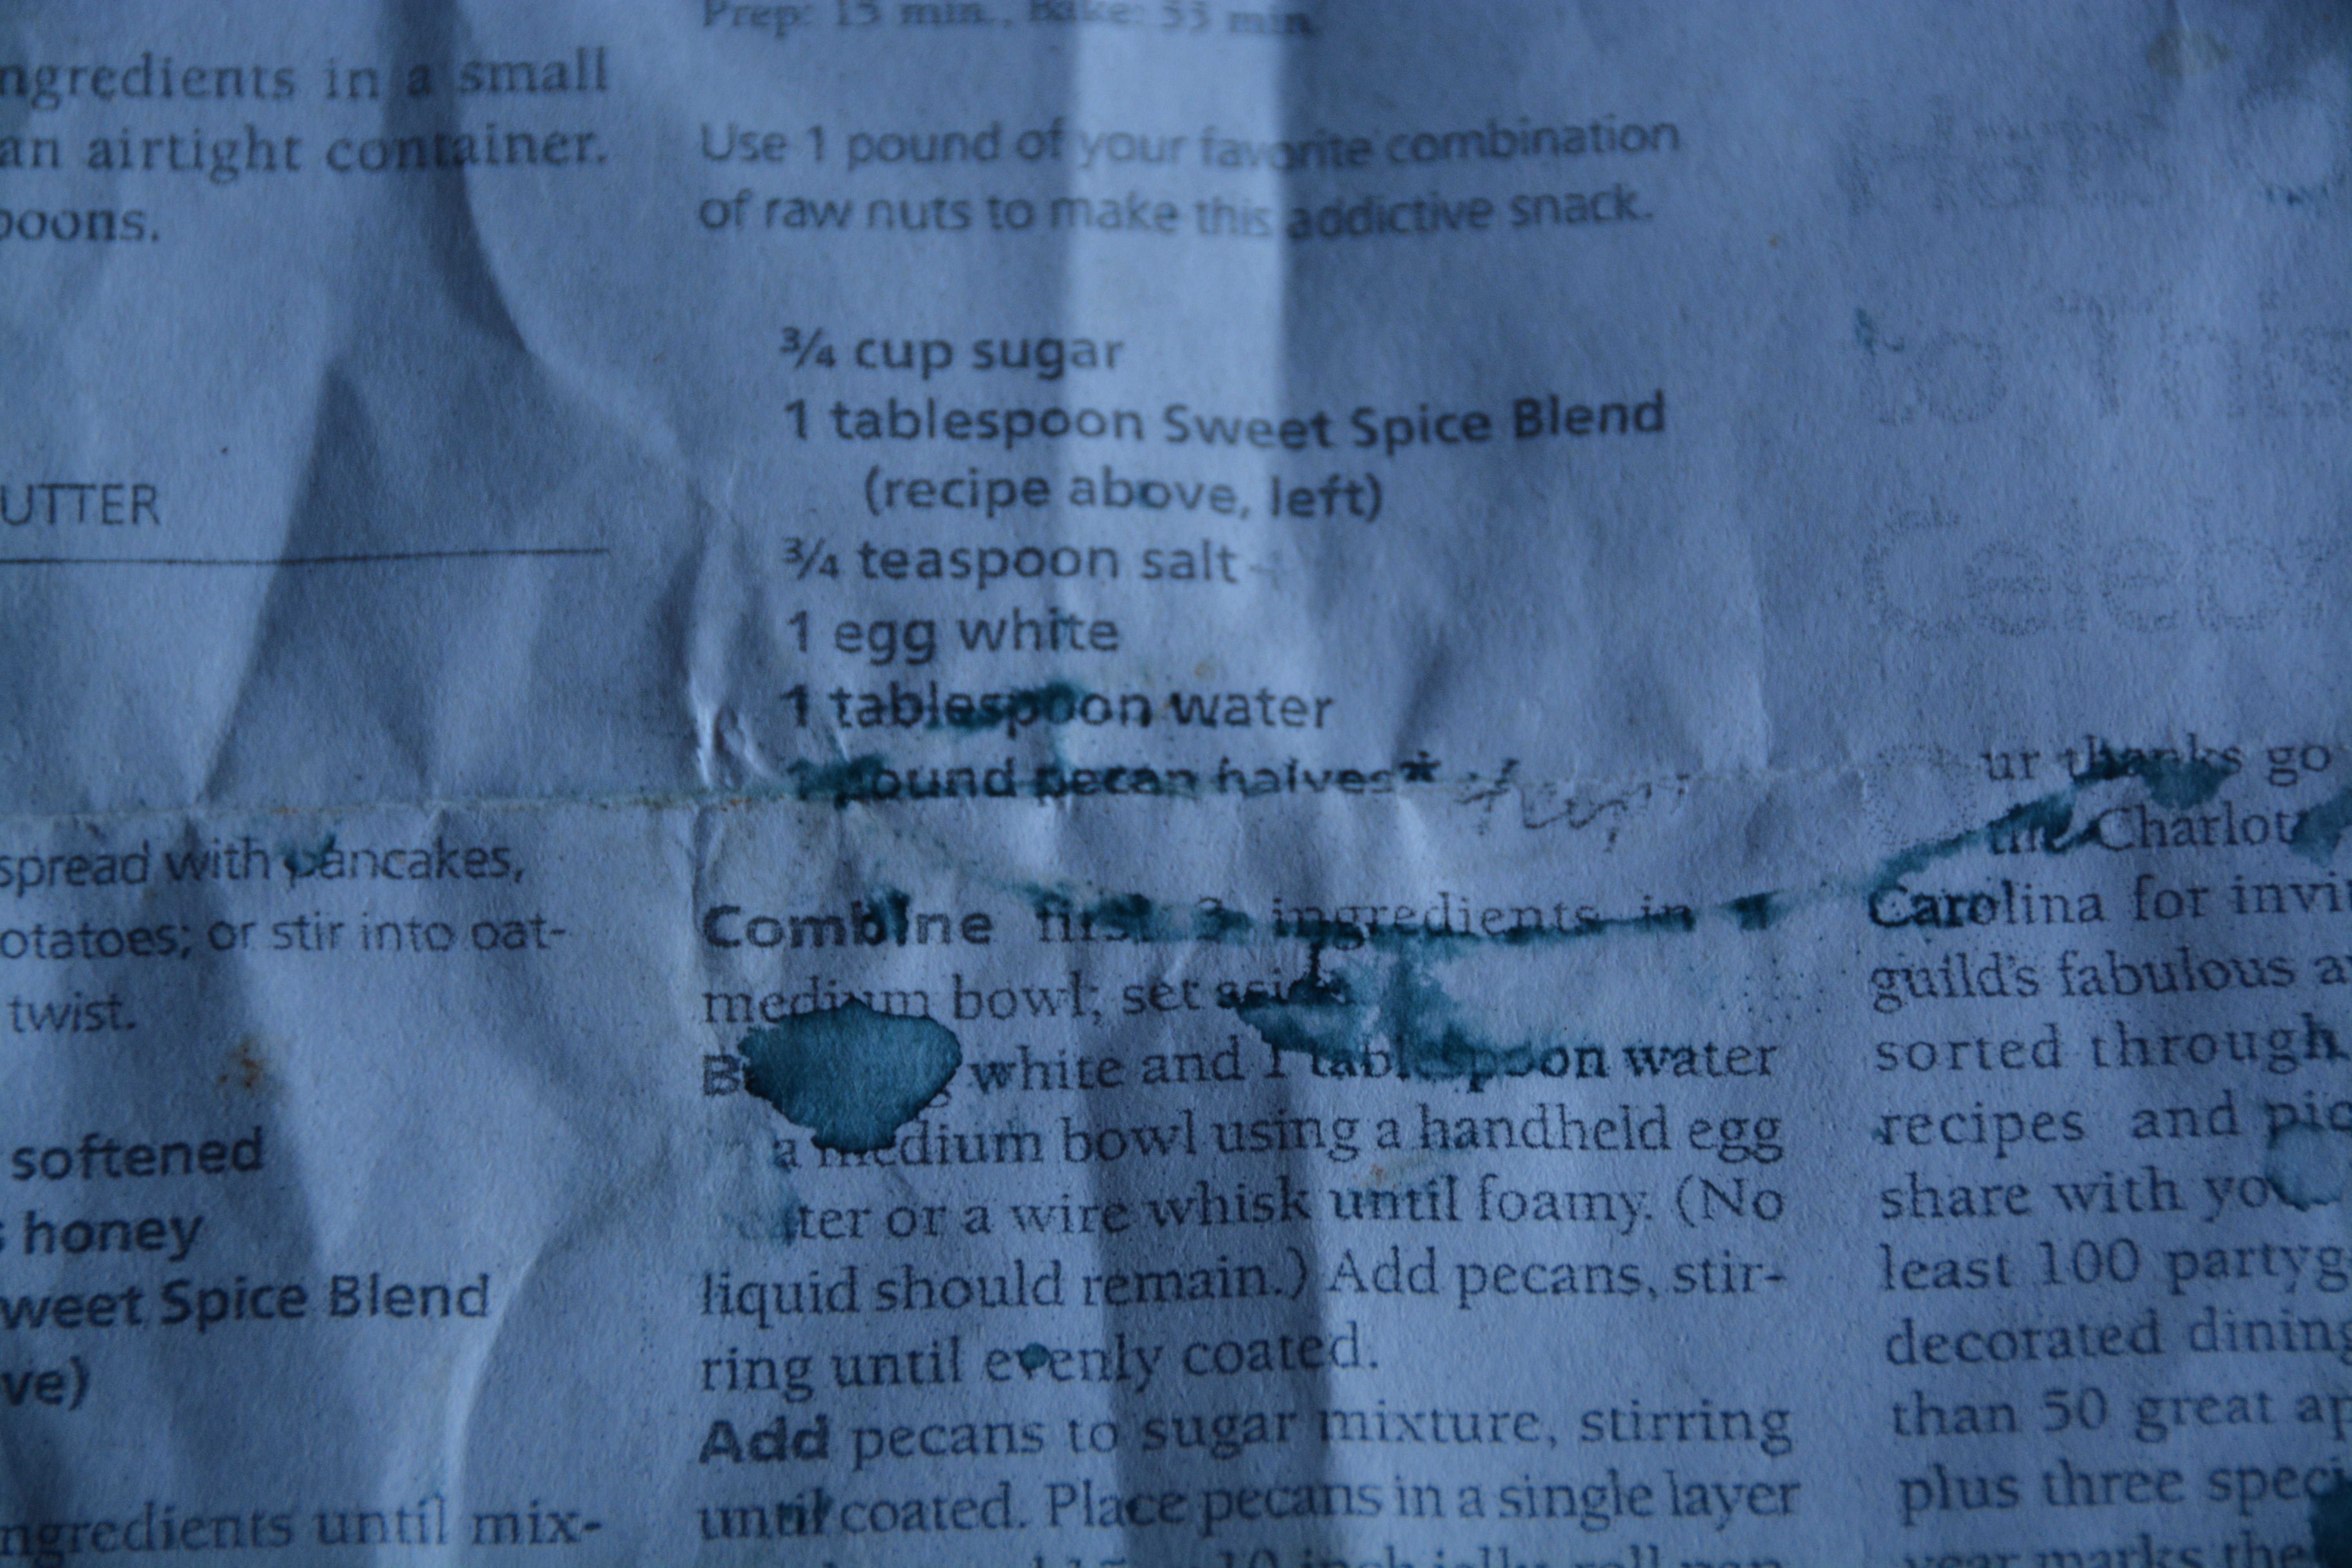 ngredients in a small
an airtight container.
poons.
UTTER
spread with pancakes,
otatoes; or stir into oat-
twist.
softened
s honey
weet Spice Blend
ve)
ngredients until mix-
Prep: 15 min., Bake: 35 min.
Use 1 pound of your favorite combination
of raw nuts to make this addictive snack.
¾ cup sugar
1 tablespoon Sweet Spice Blend
(recipe above, left)
¾ teaspoon salt
1 egg white
1 tablespoon water
1 pound pecan halves*
Combine first 3 ingredients in
medium bowl; set aside
white and 1 tablespoon water
a medium bowl using a handheld egg
ter or a wire whisk until foamy. (No
liquid should remain.) Add pecans, stir-
ring until evenly coated.
Add pecans to sugar mixture, stirring
until coated. Place pecans in a single layer
to
Celebr
ur thanks go
the Charlot
Carolina for invi
guild's fabulous a
sorted through
recipes and pic
share with yo
least 100 partyg
decorated dining
than 50 great ap
plus three speci
year marks the